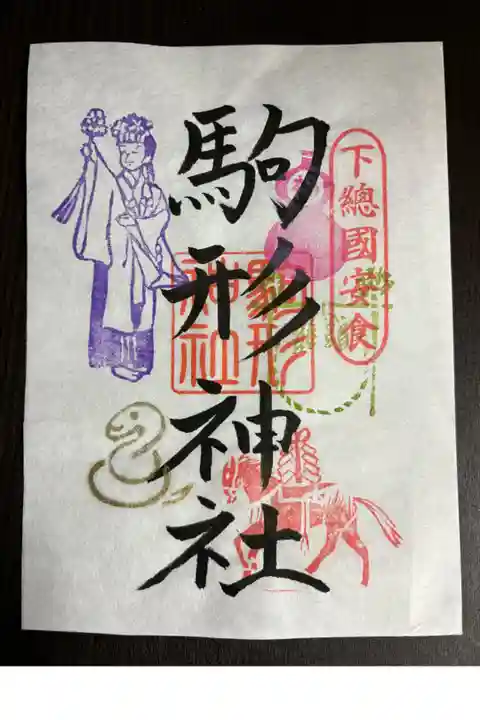 下總國安食
駒形神社
駒形神社